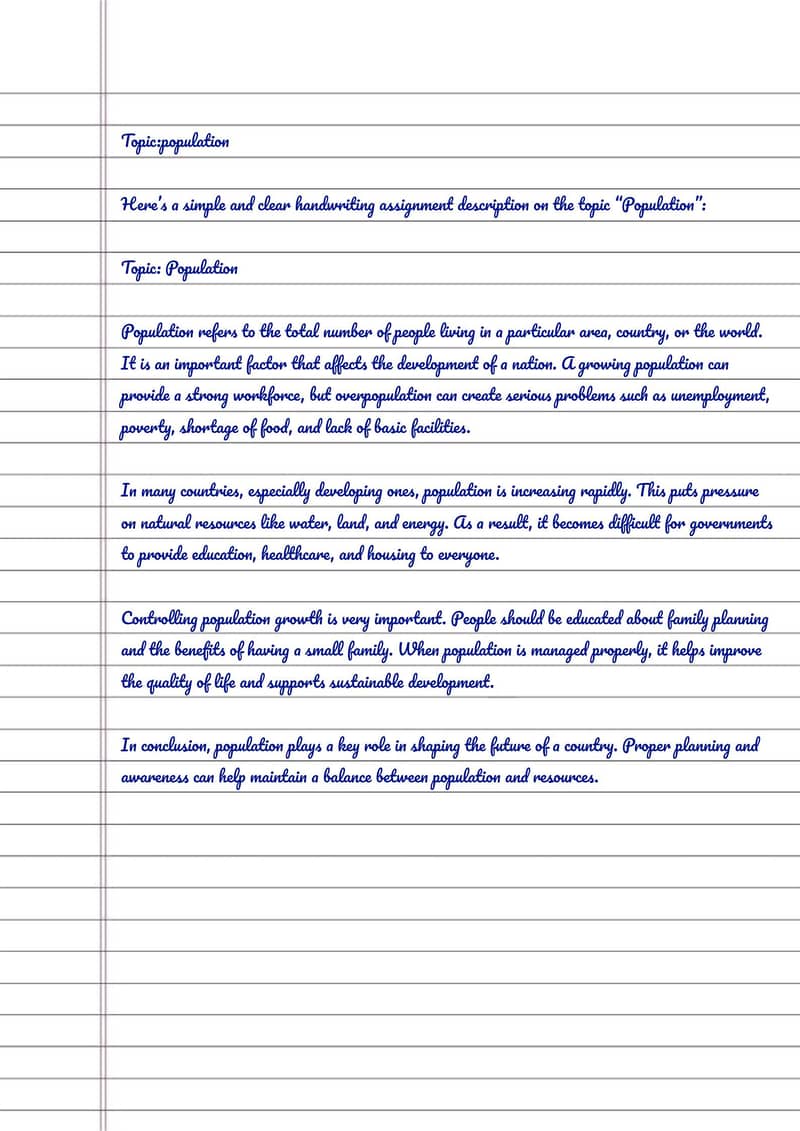 Topic:population
Here's a simple and clear handwriting assignment description on the topic “Population”:
Topic: Population
Population refers to the total number of people living in a particular area, country, or the world.
It is an important factor that affects the development of a nation. A growing population can
provide a strong workforce, but overpopulation can create serious problems such as unemployment,
poverty, shortage of food, and lack of basic facilities.
In many countries, especially developing ones, population is increasing rapidly. This puts pressure
on natural resources like water, land, and energy. As a result, it becomes difficult for governments
to provide education, healthcare, and housing to everyone.
Controlling population growth is very important. People should be educated about family planning
and the benefits of having a small family. When population is managed properly, it helps improve
the quality of life and supports sustainable development.
In conclusion, population plays a key role in shaping the future of a country. Proper planning and
awareness can help maintain a balance between population and resources.